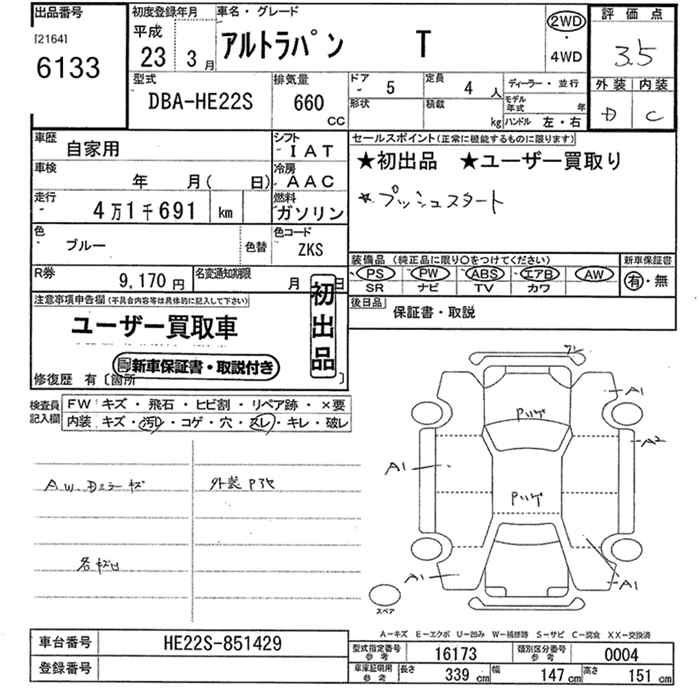 出品番号
[2164]
6133
初度登録年月
平成
23 3月
車名・グレード
アルトラパン T
2WD
・
4WD
評価点
3.5
外装 内装
D C
型式
DBA-HE22S
排気量
660
CC
ドア 5
定員 4人
ディーラー・並行
形状
積載 kg
モデル年式 年
ハンドル 左・右
車歴
自家用
シフト
IAT
車検
年 月( 日)
冷房
AAC
走行
4万1千691 km
燃料
ガソリン
色
ブルー
色替
色コード
ZKS
R券
9,170円
名変通知期限
月 日
セールスポイント(正常に機能するものに限ります)
★初出品 ★ユーザー買取り
★プッシュスタート
装備品(純正品に限り○をつけてください)
PS PW ABS エアB AW
SR ナビ TV カワ
新車保証書
有・無
後日品
保証書・取説
注意事項申告欄(不具合内容等は具体的に記入して下さい)
ユーザー買取車
新車保証書・取説付き
初出品
修復歴 有〔箇所
検査員記入欄
FW キズ・飛石・ヒビ割・リペア跡・×要
内装 キズ・汚れ・コゲ・穴・スレ・キレ・破レ
A.W.Dミラーキズ
外装Pヨセ
各キズ凹
A1
A2
A1
A1
A1
スペア
A−キズ E−エクボ U−凹み W−補修跡 S−サビ C−腐食 XX−交換済
車台番号
HE22S-851429
登録番号
型式指定番号
参考
16173
類別区分番号
参考
0004
車庫証明用
参考
長さ 339 cm
幅 147 cm
高さ 151 cm